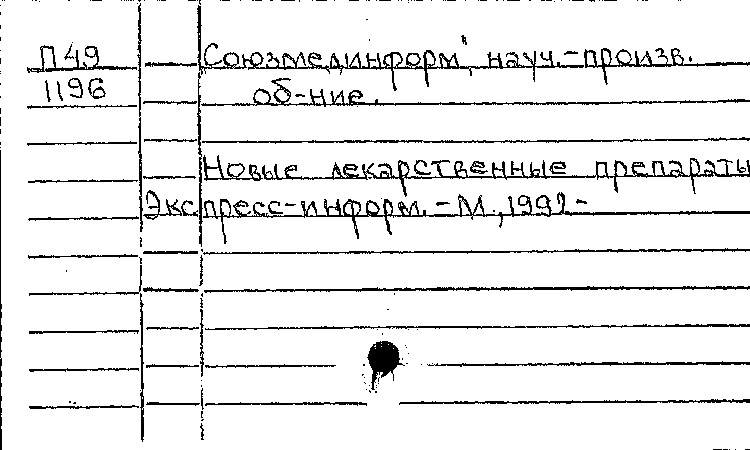 П49 Союзмединформ", науч.-произв.
1196 об-ние.
Новые лекарственные препараты
Экспресс-информ. - М., 1992-